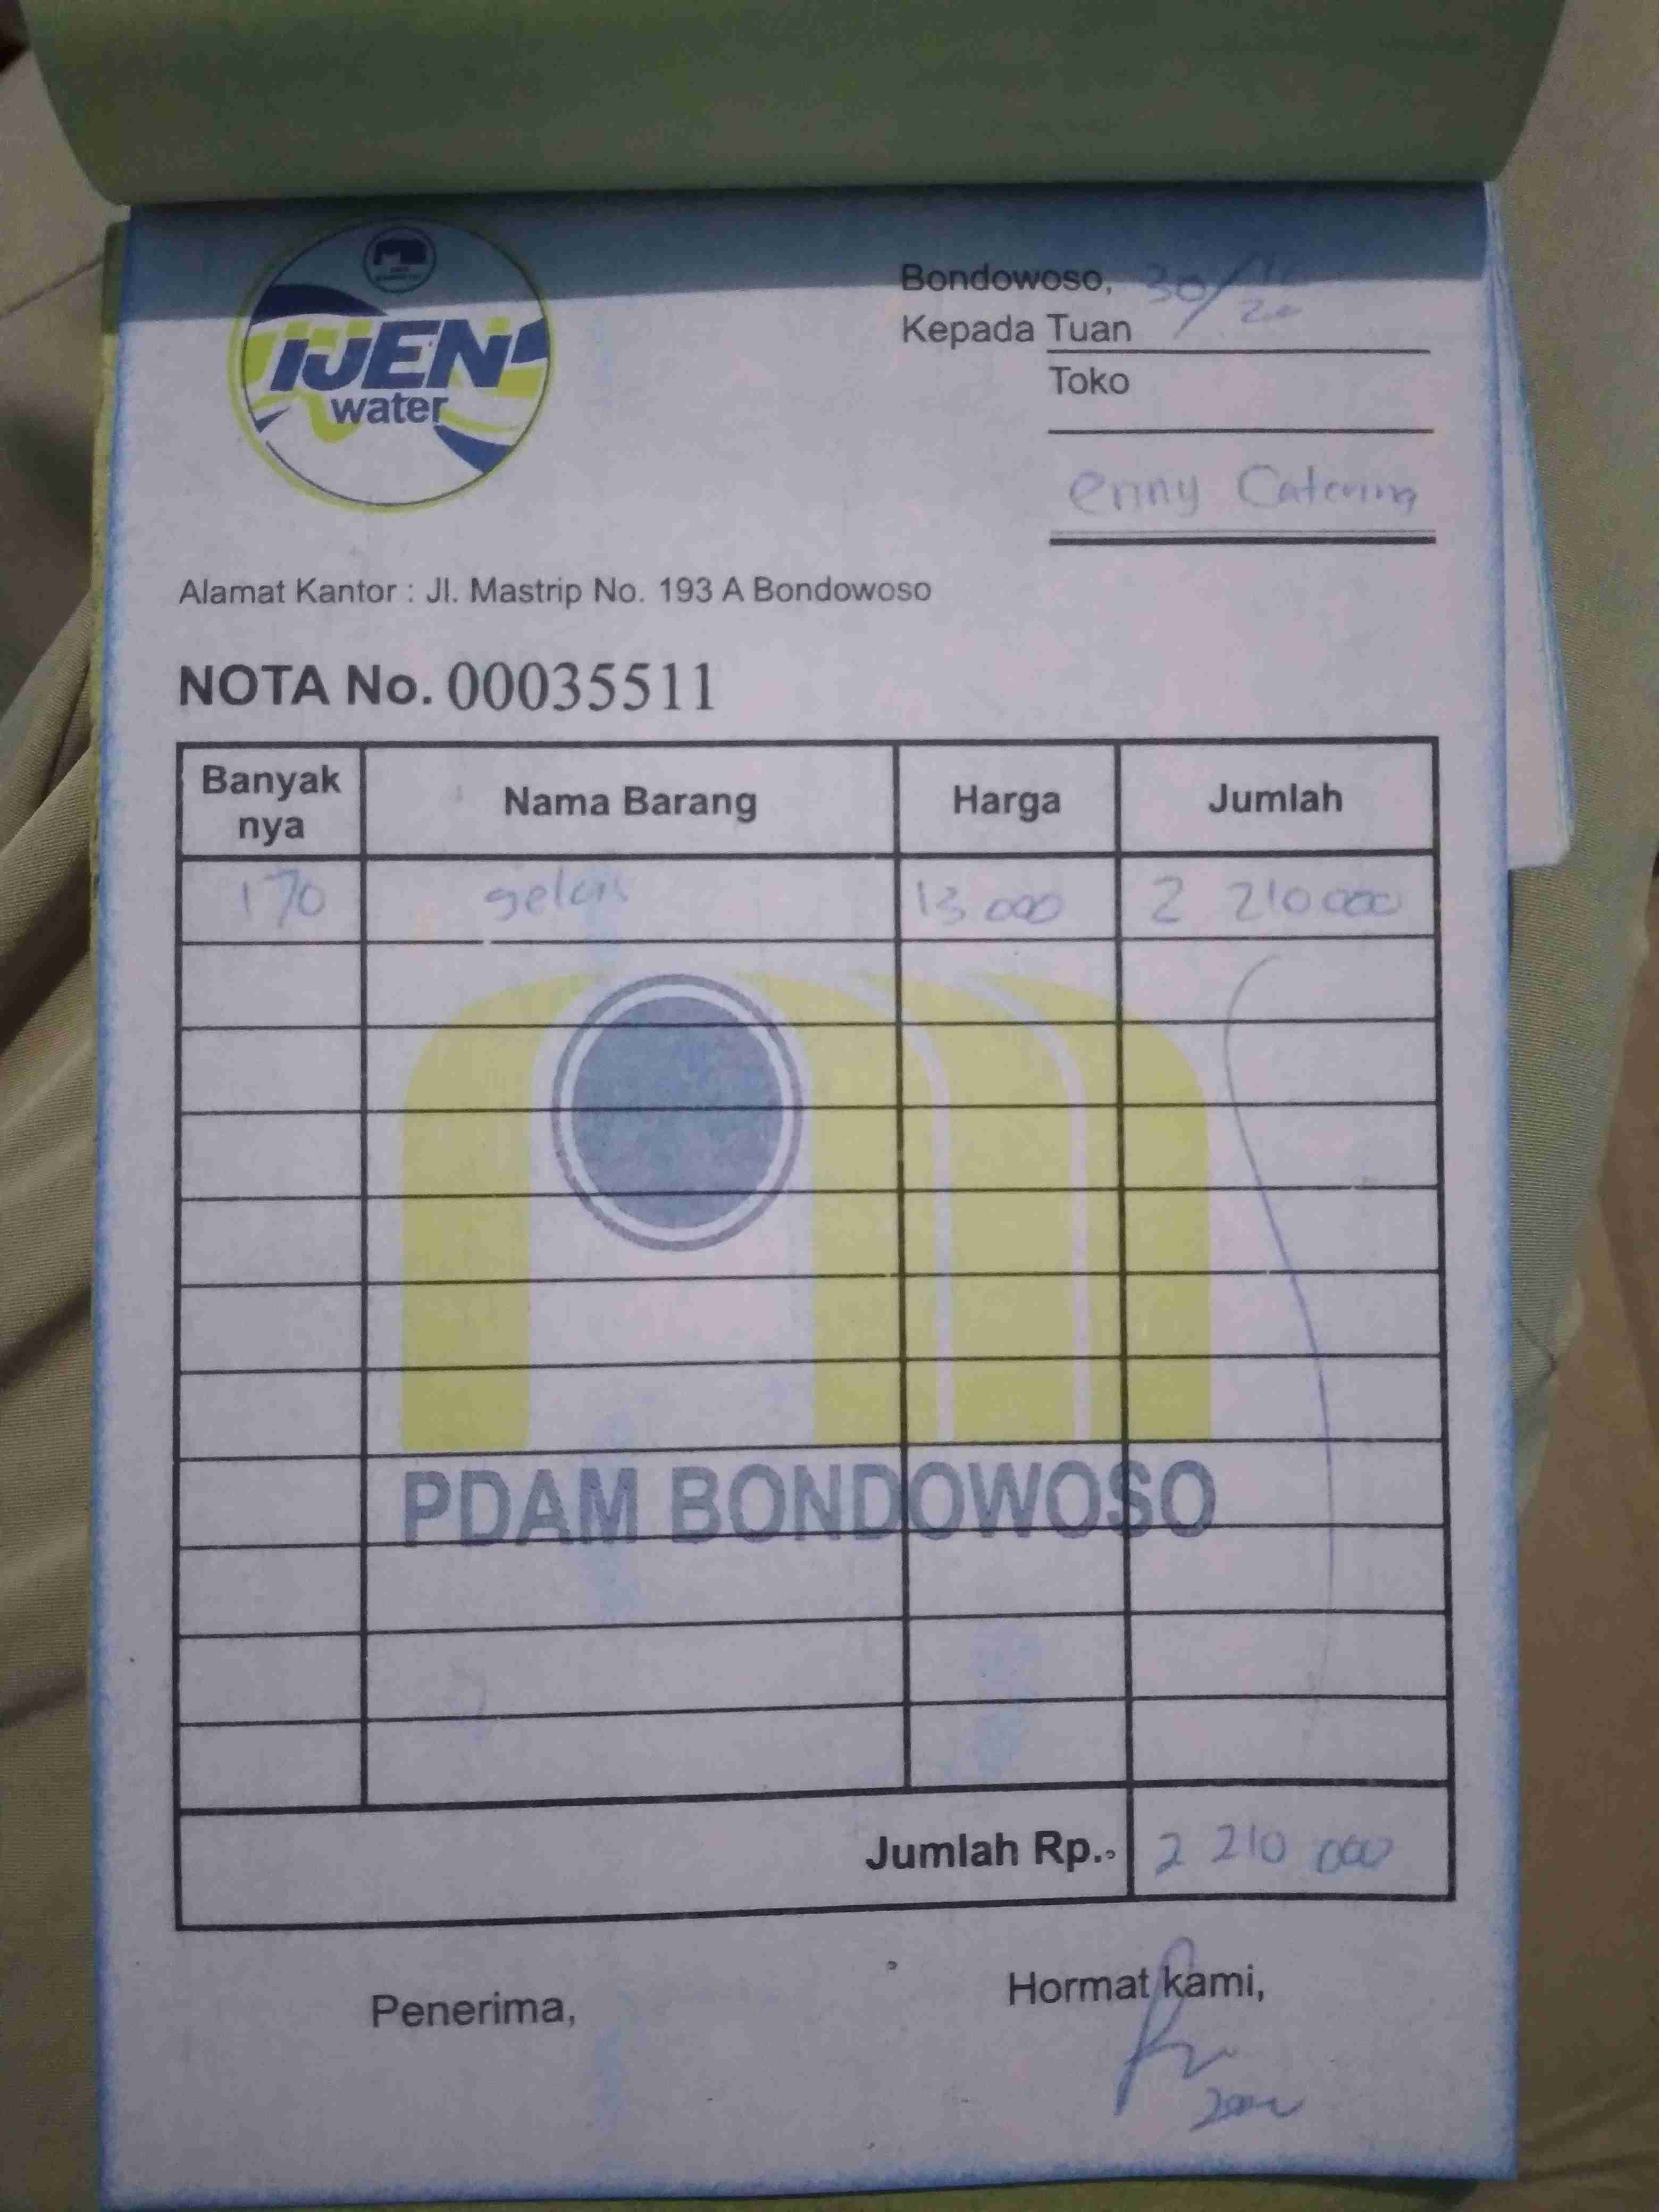 IJEN
water
Bondowoso, 30/12
20
Kepada Tuan
Toko
enny Catering
Alamat Kantor : Jl. Mastrip No. 193 A Bondowoso
NOTA No. 00035511
Banyak nya Nama Barang Harga Jumlah
170 gelas 13 000 2 210 000
PDAM BONDOWOSO
Jumlah Rp. 2 210 000
Penerima, Hormat kami,